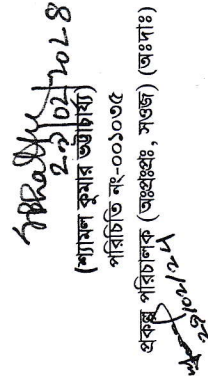 ২১/০২/২০২৪
(শ্যামল কুমার ভট্টাচার্য্য)
পরিচিতি নং-০০১০৩৫
প্রকল্প পরিচালক (অঃপ্রঃপ্রঃ, সওজ) (অঃদাঃ)